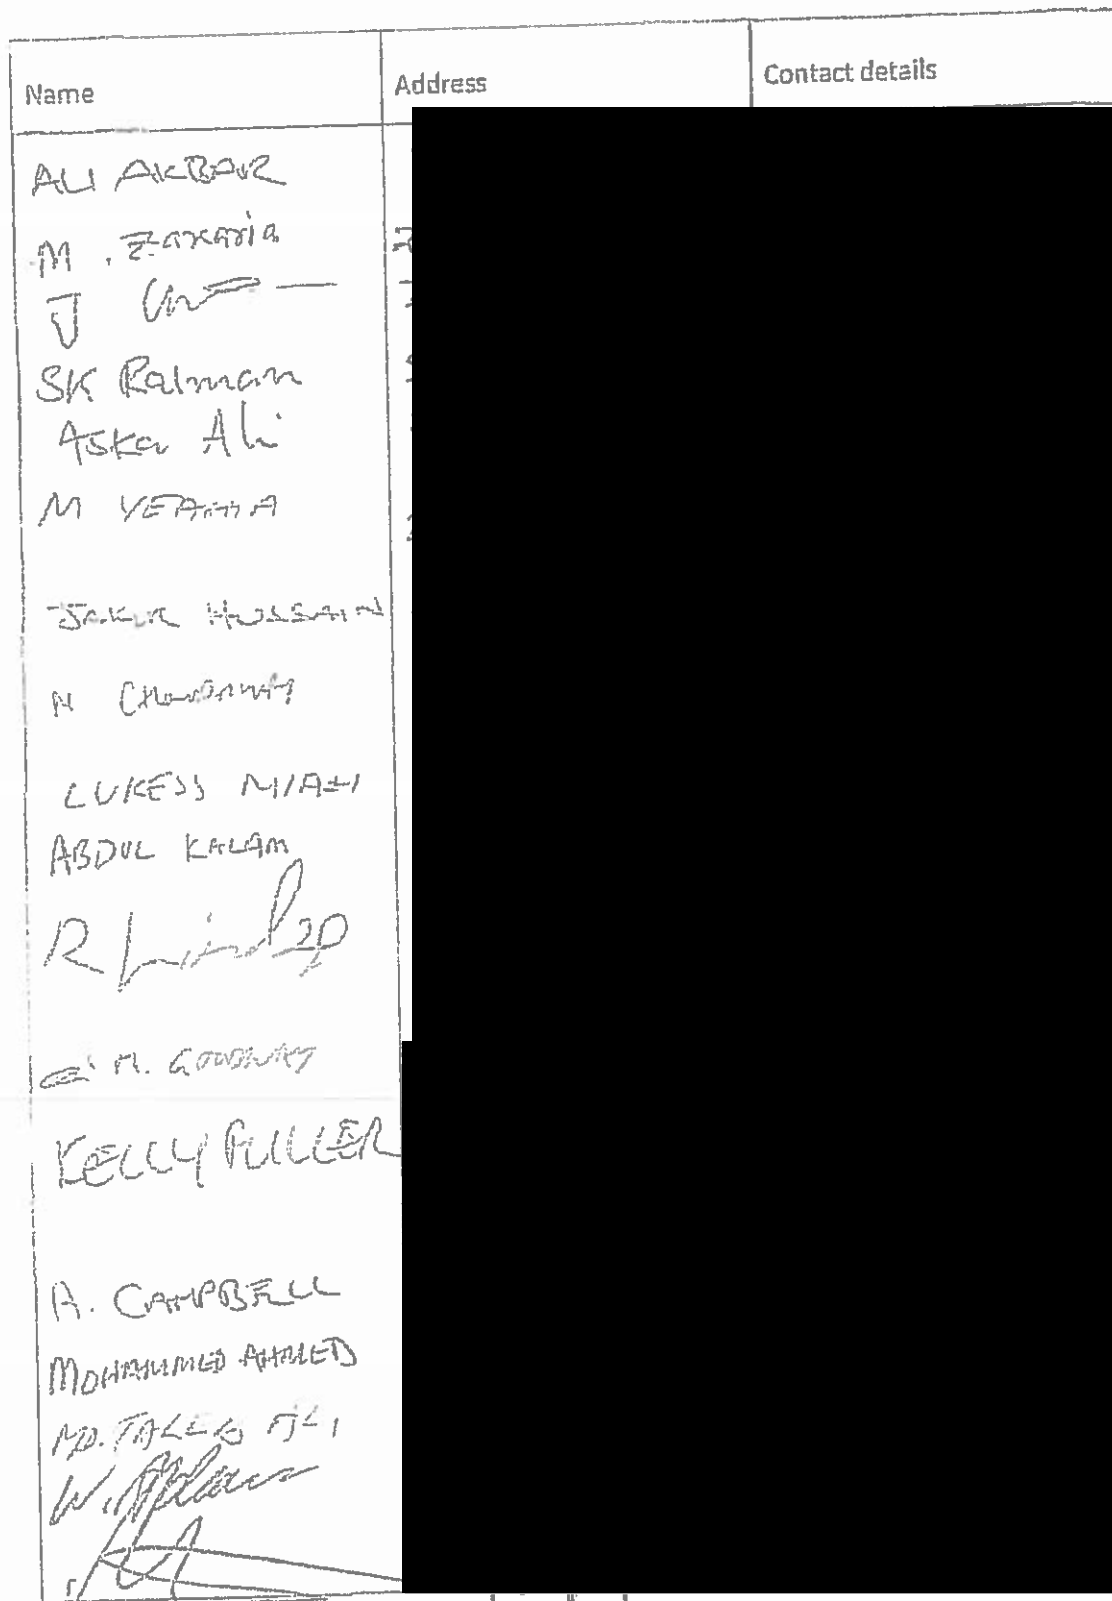 Name Address Contact details
ALI AKBAR
M. Zakaria
J
SK Rahman
Aska Ali
M YEAHIA
JAKIR HUSSAIN
N CHOUDHURY
LUKESS MIAH
ABDUL KALAM
R
M.
KELLY FULLER
A. CAMPBELL
MOHAMMED AHMED
MD. TALEB ALI
W.